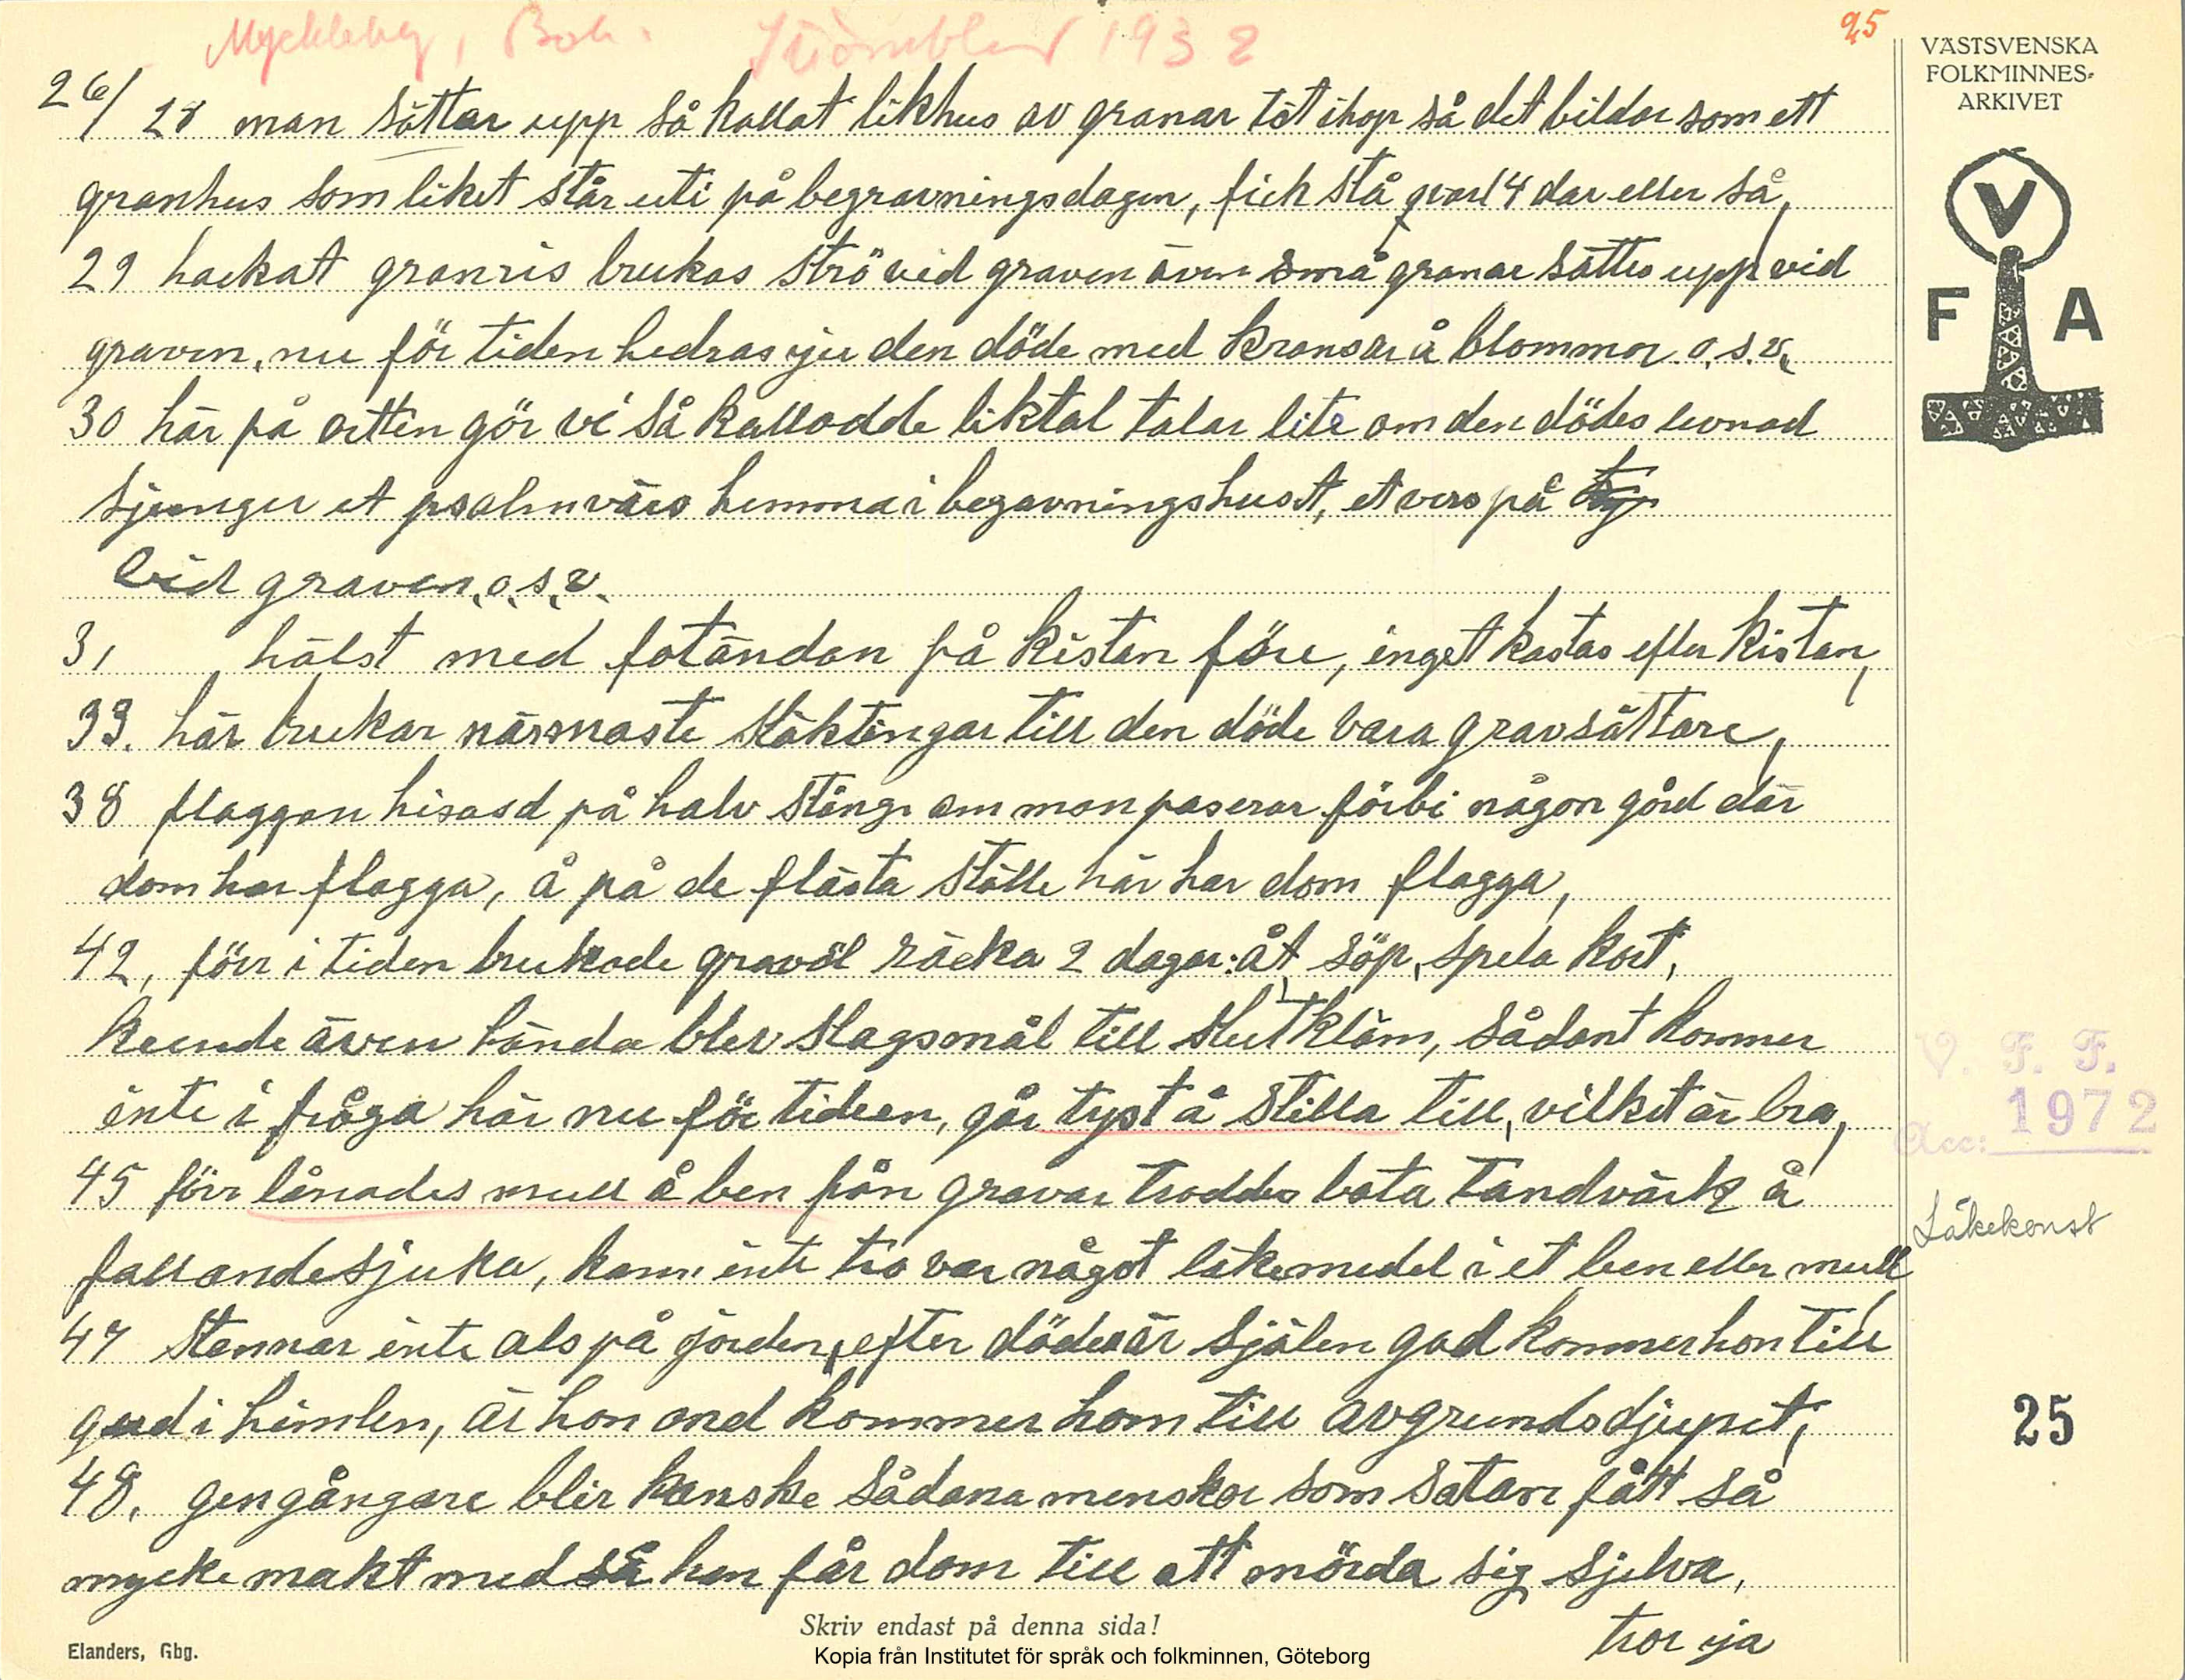 Myckleby, Boh. Strömblad 1932
25
VÄSTSVENSKA
FOLKMINNES-
ARKIVET
V
F A
26/
28 man sättar upp så kallat likhus av granar tät ihop så det bildar som ett
granhus som liket står uti på begravningsdagen, fick stå qvar 14 dar eller så,
29 hackat granris brukas strö vid graven även små granar sättes upp vid
graven, nu för tiden hedras ju den döde med kransar å blommor o.s.v.
30 här på orten gör vi så kallade liktal talar lite om den dödes levnad
sjunger et psalmvärs hemma i begravningshuset, et vers på
vid graven, o.s.v.
31 hälst med fotändan på kistan före, inget kastas efter kistan,
33. här brukar närmaste släktingar till den döde vara gravsättare,
38 flaggan hisasd på halv stång om man paserar förbi någon gård där
dom har flagga, å på de flästa ställe här har dom flagga,
42, förr i tiden brukade gravöl räcka 2 dagar: åt söp, spela kort,
kunde även hända blev slagsmål till slutkläm, sådant kommer
inte i fråga här nu för tideen, går tyst å stilla till, vilket är bra,
45 förr lånades mull å ben från gravar troddes bota tandvärk å
fallandesjuka, kan inte tro var något läkemedel i et ben eller mull
47 stannar inte als på jorden, efter döden är själen god kommer hon till
gud i himlen, är hon ond kommer hon till avgrundsdjupet,
48. gengångare blir kanske sådana menskor som satan fått så
mycke makt med så han får dom till att mörda sig sjelva,
tror ja
V. F. F.
Acc: 1972
Läkekonst
25
Skriv endast på denna sida!
Elanders, Gbg.
Kopia från Institutet för språk och folkminnen, Göteborg